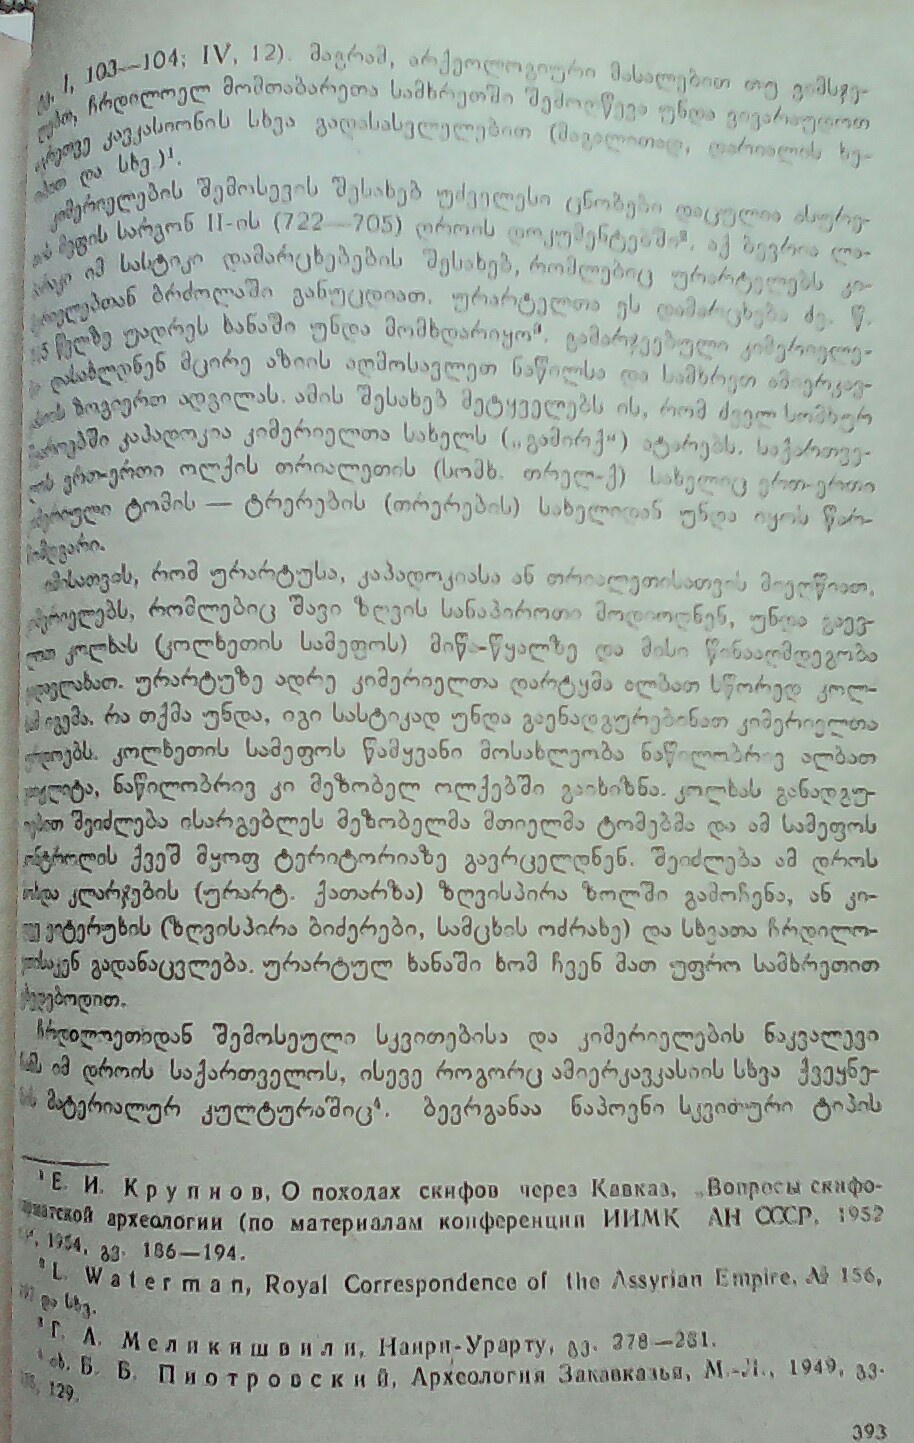 I, 103—104; IV, 12). მაგრამ, არქეოლოგიური მასალებით თუ ვიმსჯე-
ლებთ, ჩრდილოელ მომთაბარეთა სამხრეთში შემოღწევა უნდა ვივარაუდოთ
კავკასიონის სხვა გადასასვლელებით (მაგალითად, დარიალის ხე-
და სხვ.)¹.
კიმერიელების შემოსევის შესახებ უძველესი ცნობები დაცულია ასურე-
მეფის სარგონ II-ის (722—705) დროის დოკუმენტებში², აქ ბევრია ლა-
იმ სასტიკი დამარცხებების შესახებ, რომლებიც ურარტელებს კი-
ბრძოლაში განუცდიათ. ურარტელთა ეს დამარცხება ძვ. წ.
წელზე უადრეს ხანაში უნდა მომხდარიყო³. გამარჯვებული კიმერიელე-
დასახლდნენ მცირე აზიის აღმოსავლეთ ნაწილსა და სამხრეთ ამიერკავ-
ზოგიერთ ადგილას. ამის შესახებ მეტყველებს ის, რომ ძველ სომხურ
კაპადოკია კიმერიელთა სახელს („გამირქ“) ატარებს. საქართვე-
ერთ-ერთი ოლქის თრიალეთის (სომხ. თრელ-ქ) სახელიც ერთ-ერთი
ტომის — ტრერების (თრერების) სახელიდან უნდა იყოს წარ-
მომდგარი.
იმისათვის, რომ ურარტუსა, კაპადოკიასა ან თრიალეთისათვის მიეღწიათ,
კიმერიელებს, რომლებიც შავი ზღვის სანაპიროთი მოდიოდნენ, უნდა გაევ-
ლოთ კოლხას (კოლხეთის სამეფოს) მიწა-წყალზე და მისი წინააღმდეგობა
დაეძლახათ. ურარტუზე ადრე კიმერიელთა დარტყმა ალბათ სწორედ კოლ-
ხამ იგემა. რა თქმა უნდა, იგი სასტიკად უნდა გაენადგურებინათ კიმერიელთა
კოლხეთის სამეფოს წამყვანი მოსახლეობა ნაწილობრივ ალბათ
გაიჟლიტა, ნაწილობრივ კი მეზობელ ოლქებში გაიხიზნა. კოლხას განადგუ-
რებით შეიძლება ისარგებლეს მეზობელმა მთიელმა ტომებმა და ამ სამეფოს
კონტროლის ქვეშ მყოფ ტერიტორიაზე გავრცელდნენ. შეიძლება ამ დროს
მოხდა კლარჯების (ურარტ. ქათარზა) ზღვისპირა ზოლში გამოჩენა, ან კი-
დევ ვიტერუხის (ზღვისპირა ბიძერები, სამცხის ოძრახე) და სხვათა ჩრდილო-
ეთისაკენ გადანაცვლება. ურარტულ ხანაში ხომ ჩვენ მათ უფრო სამხრეთით
ვხვდებოდით.
ჩრდილოეთიდან შემოსეული სკვითებისა და კიმერიელების ნაკვალევი
ჩანს იმ დროის საქართველოს, ისევე როგორც ამიერკავკასიის სხვა ქვეყნე-
ბის მატერიალურ კულტურაშიც⁴. ბევრგანაა ნაპოვნი სკვითური ტიპის
¹ Е. И. Крупнов, О походах скифов через Кавказ, „Вопросы скифо-
сарматской археологии (по материалам конференции ИИМК АН СССР, 1952
1954, გვ. 186—194.
² L. Waterman, Royal Correspondence of the Assyrian Empire, № 156,
197 და სხვ.
³ Г. А. Меликишвили, Наири-Урарту, გვ. 278—281.
⁴ იხ. Б. Б. Пиотровский, Археология Закавказья, М.-Л., 1949, გვ.
129.
393